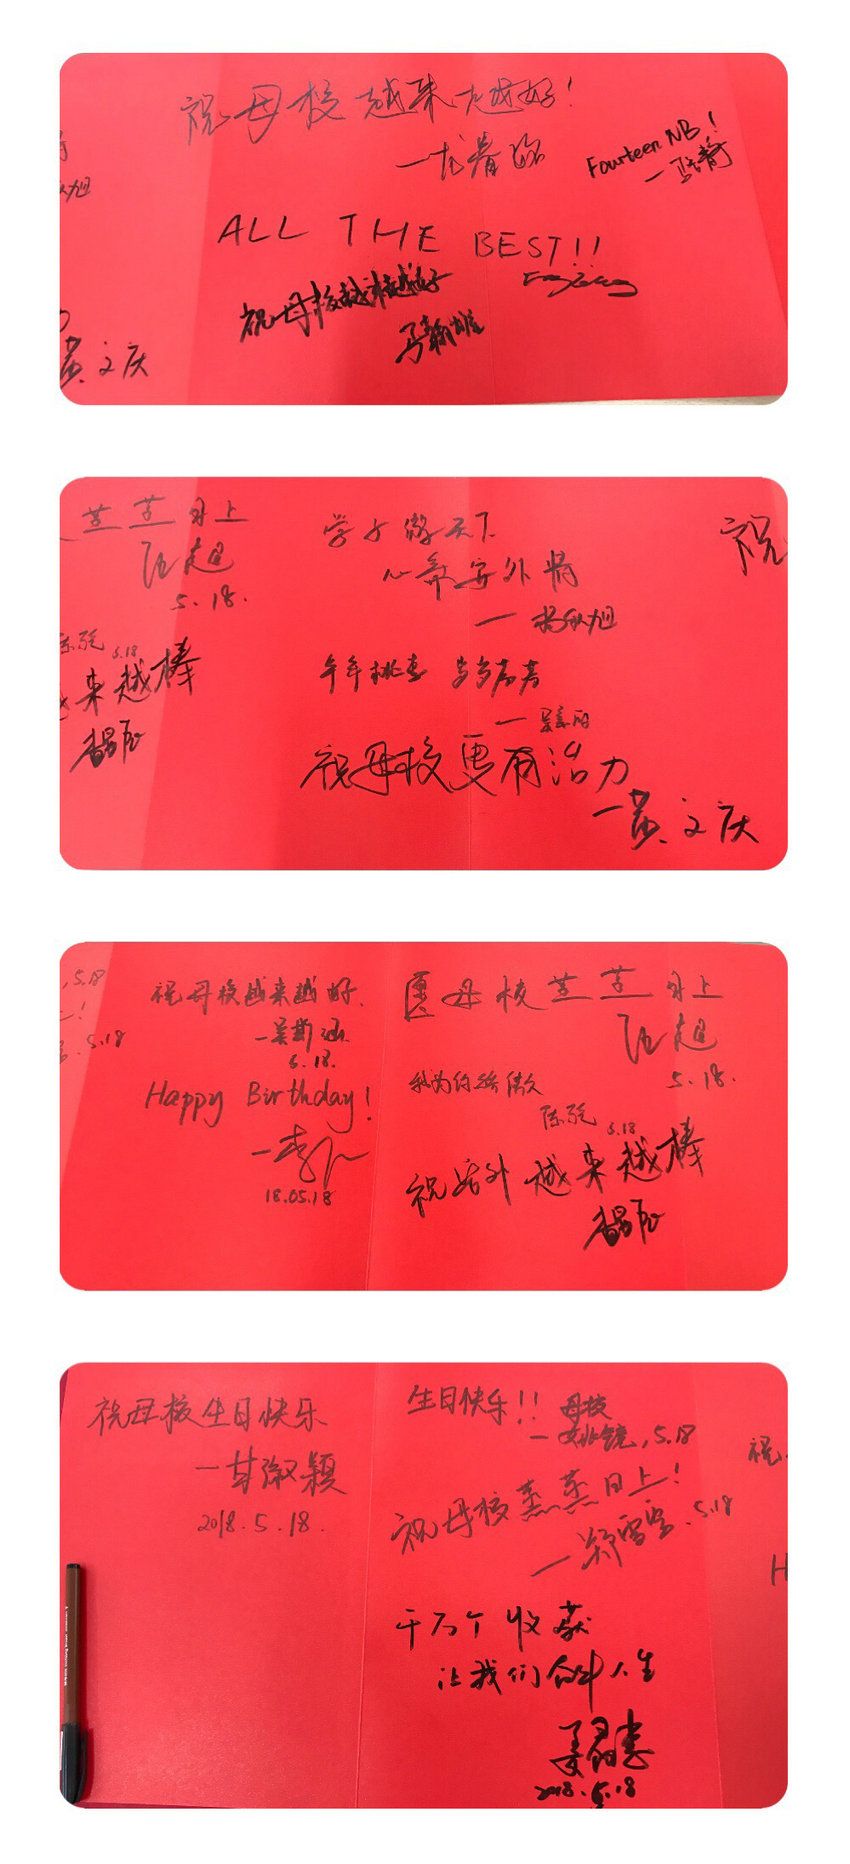 祝母校越来越好!
Fourteen NB!
ALL THE BEST!!
祝母校越来越好
马翰雄
黄文庆
蒸蒸日上
5.18.
学子傲天下
心系安外情
杨秋旭
陈绽 5.18
来越棒
年年桃李 岁岁芬芳
祝
祝母校更有活力
一黄文庆
5.18
5.18
祝母校越来越好.
一吴斯涵
5.18.
Happy Birthday!
一李
18.05.18
愿母校蒸蒸日上
5.18.
我为你骄傲
陈绽 5.18
祝安外越来越棒
祝母校生日快乐
一甘淑颖
2018.5.18.
生日快乐!! 母校
一姚镜,5.18
祝母校蒸蒸日上!
一郑雪莹.5.18
千万个收获
让我们合叶人生
2018.5.18
祝
H